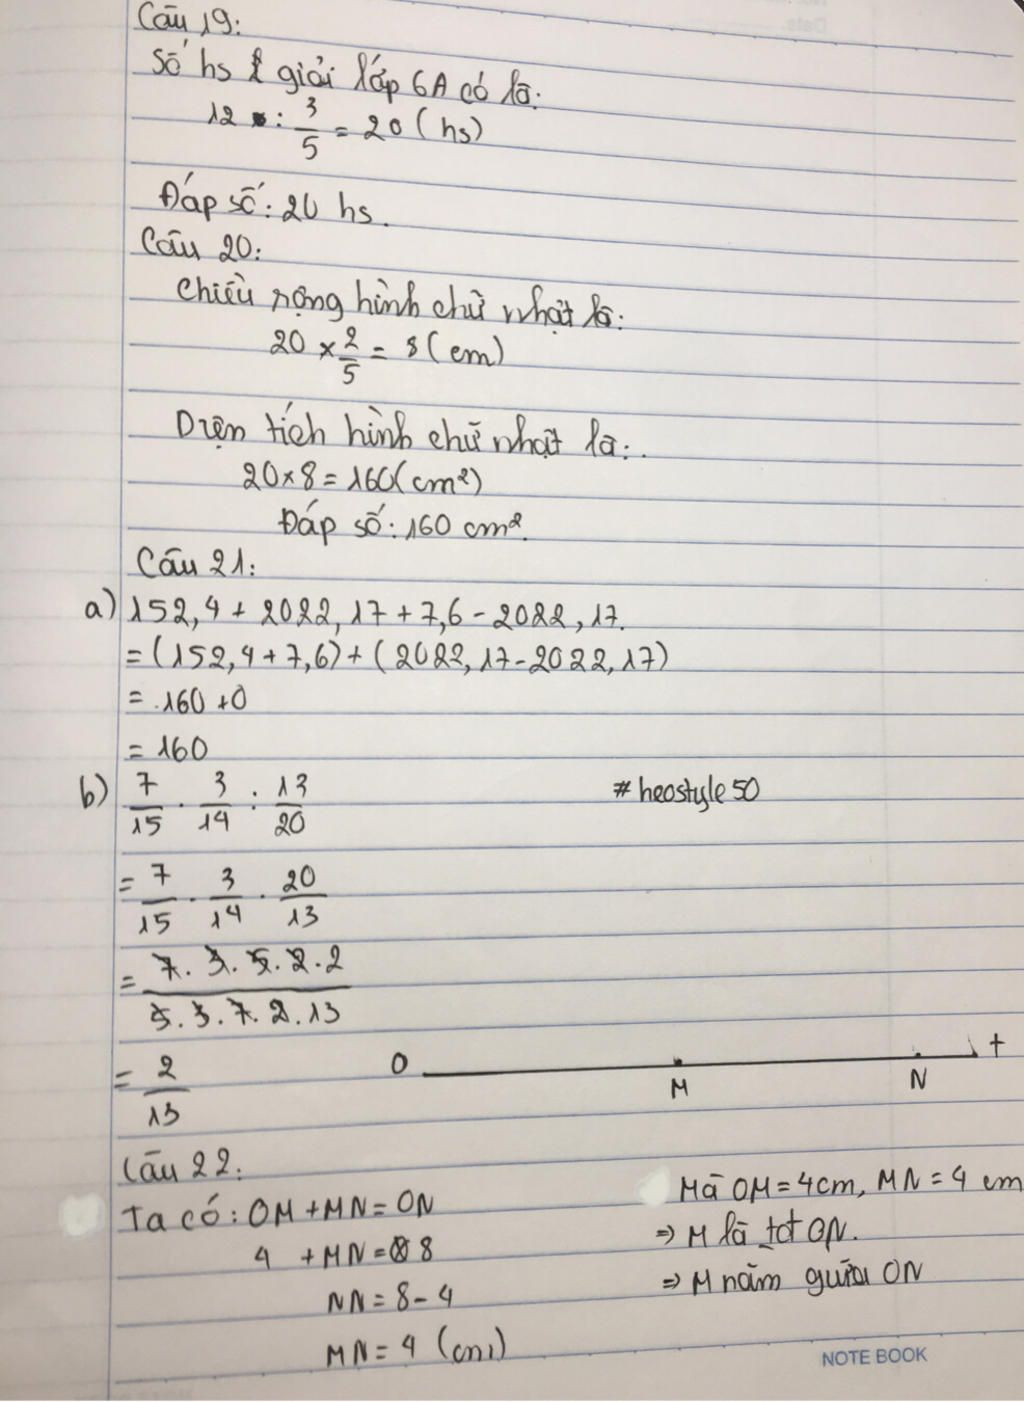 Câu 19:
Số hs giỏi lớp 6A có là:
12 : 3/5 = 20 (hs)
Đáp số: 20 hs.
Câu 20:
Chiều rộng hình chữ nhật là:
20 × 2/5 = 8 (cm)
Diện tích hình chữ nhật là:.
20×8 = 160(cm²)
Đáp số: 160 cm².
Câu 21:
a) 152,4 + 2022,17 + 7,6 - 2022,17.
= (152,4 + 7,6) + (2022,17 - 2022,17)
= 160 + 0
= 160
b) 7/15 . 3/14 : 13/20
#heostyle50
= 7/15 . 3/14 . 20/13
= 7.3.5.2.2/5.3.7.2.13
= 2/13
O M N t
Câu 22:
Ta có: OM + MN = ON
4 + MN = 8
NN = 8 - 4
MN = 4 (cm)
Mà OM = 4cm, MN = 4 cm
⇒ M là tđ ON.
⇒ M nằm giữa ON
NOTE BOOK